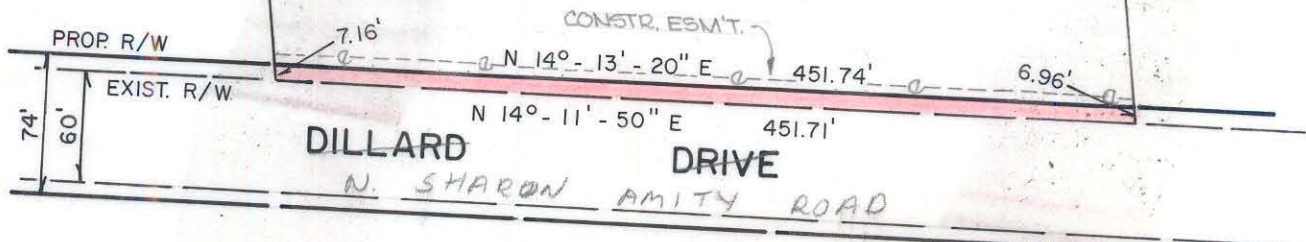 CONSTR. ESM'T.
7.16'
PROP. R/W
N 14° - 13' - 20" E 451.74' 6.96'
EXIST. R/W
N 14° - 11' - 50" E 451.71'
74'
60'
DILLARD DRIVE
N. SHARON AMITY ROAD